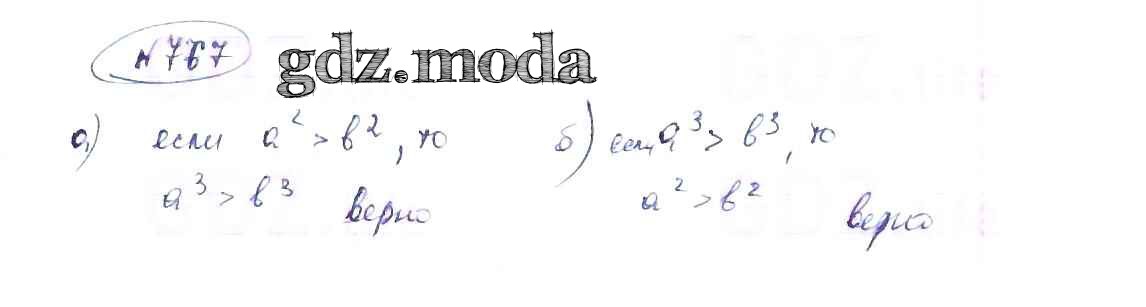 №767 gdz.moda
а) если a² > b², то
a³ > b³ верно
б) если a³ > b³, то
a² > b² верно